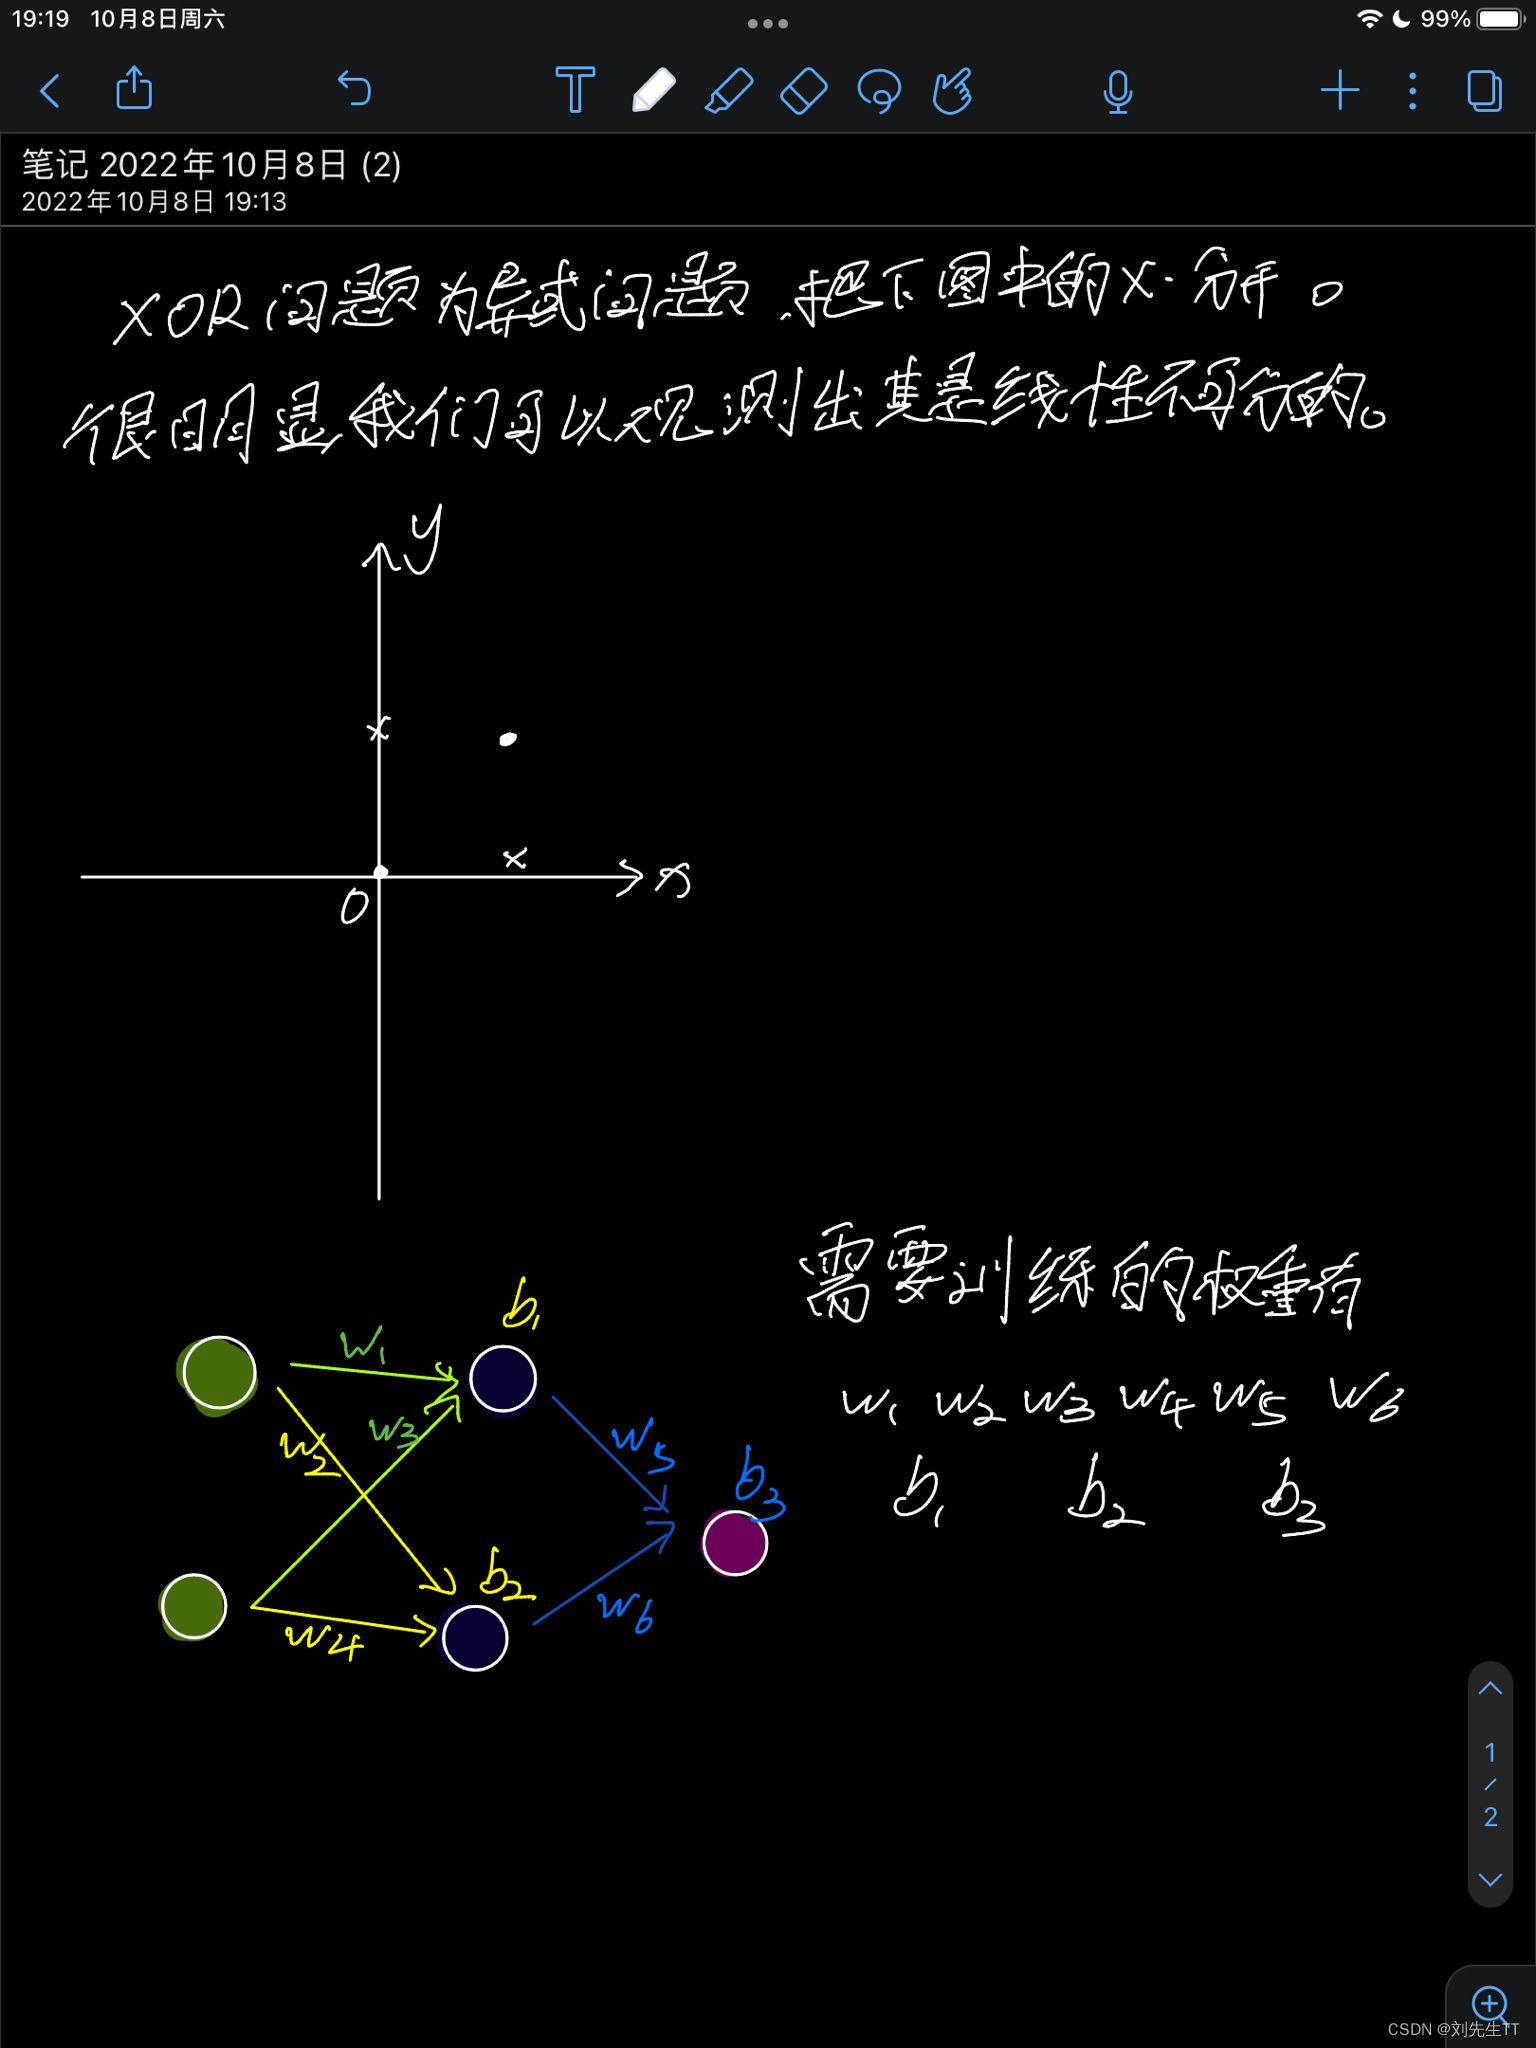 19:19 10月8日周六 99%
笔记 2022年10月8日 (2)
2022年10月8日 19:13
XOR问题为异或问题,把下图中的X·分开。
很明显,我们可以观测出其是线性不可分的。
y
x
x
0
x
需要训练的权重有
b1
w1
w3
w2
w1 w2 w3 w4 w5 w6
w5
b3
b1 b2 b3
b2
w4
w6
1
/
2
CSDN @刘先生TT